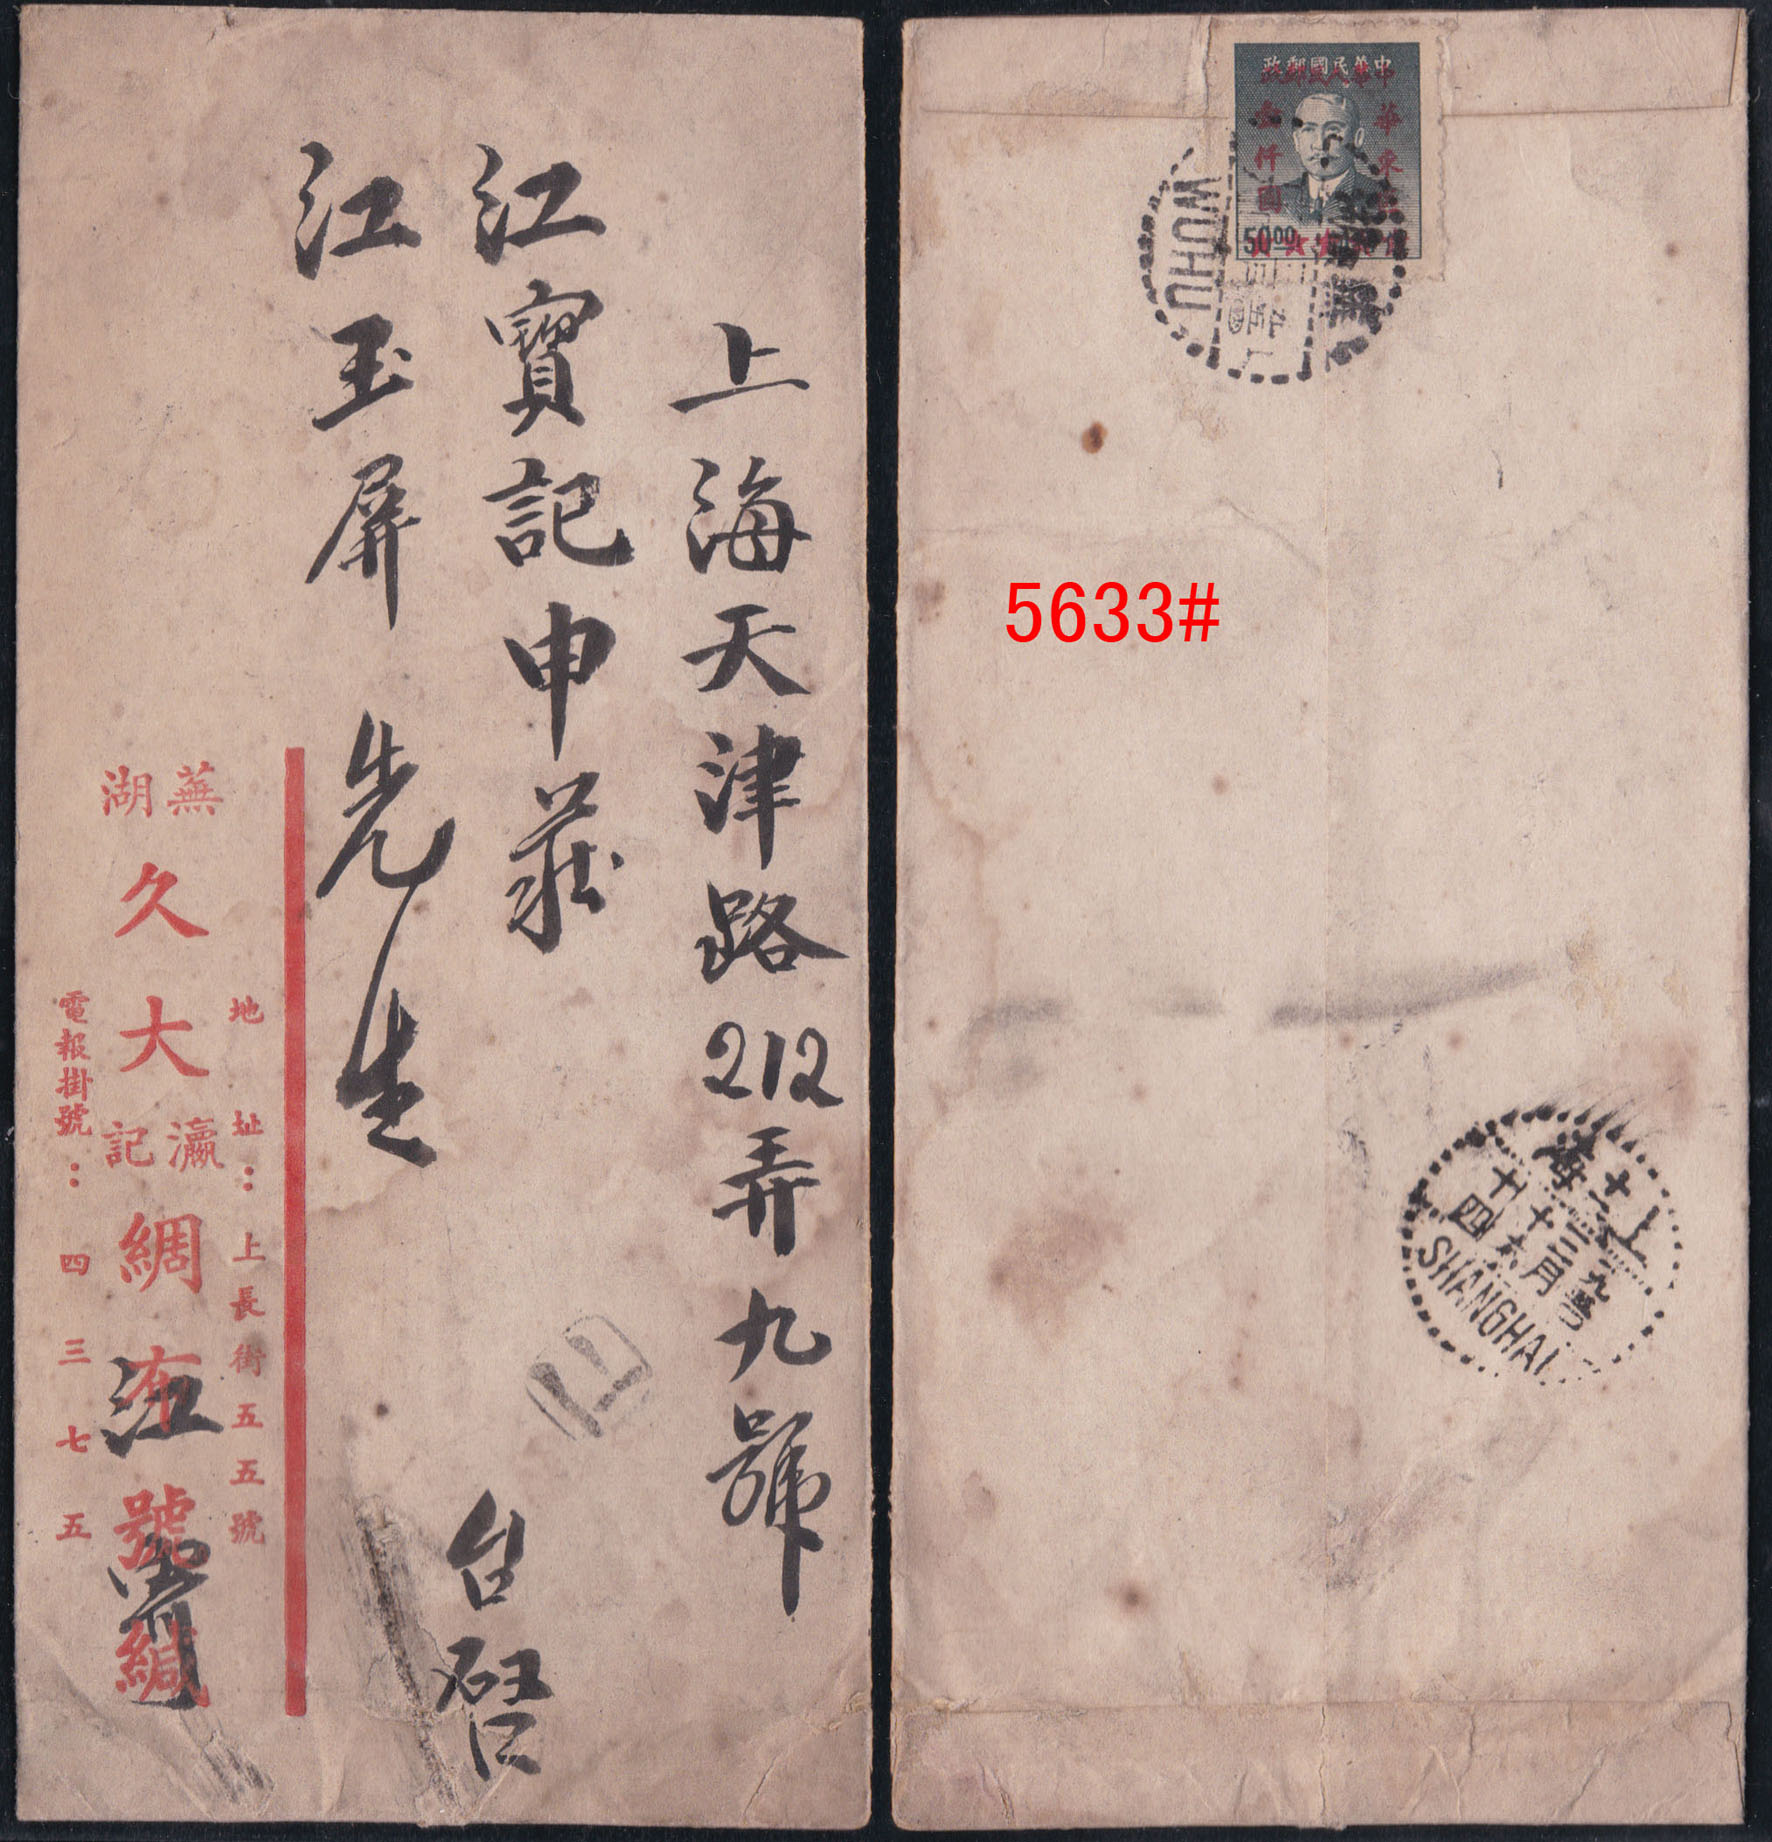 上海天津路212弄九號
江寶記申莊
江玉屏 先生
台啓
地址：上長街五五號
蕪湖
久大
瀛記
綢布號緘
江
電報掛號：四三七五
中華民國郵政
華東區
叁仟圓
50 00
WUHU
5633#
上海
SHANGHAI